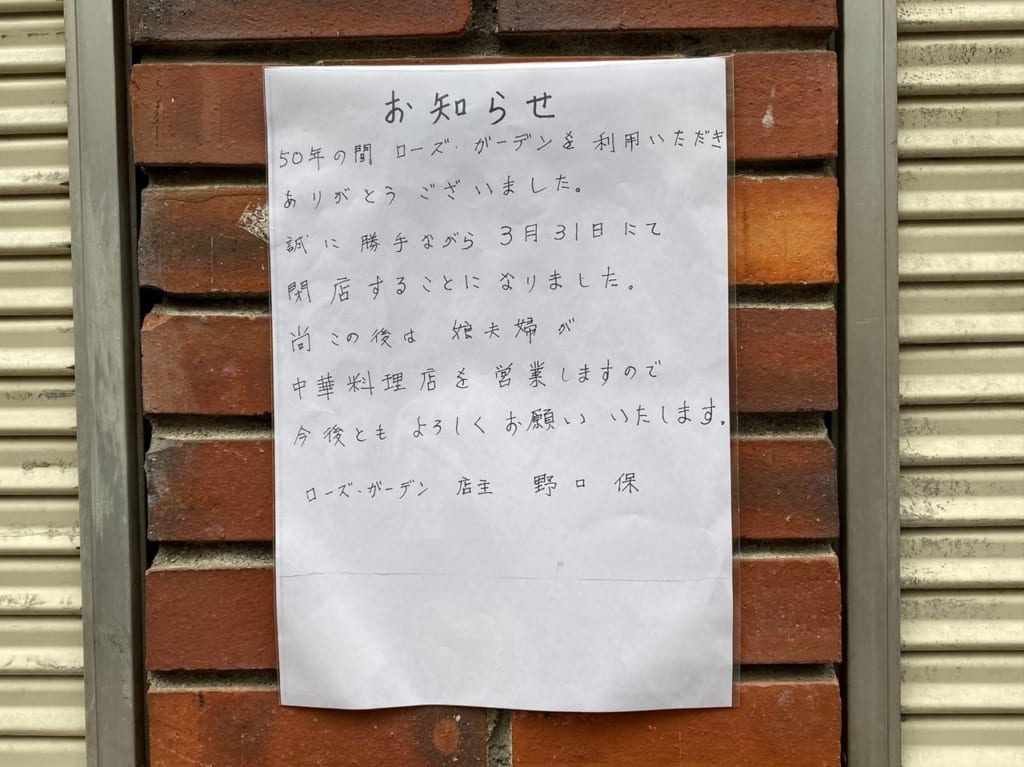 お知らせ
50年の間 ローズ・ガーデンを 利用いただき
ありがとう ございました。
誠に 勝手ながら 3月31日にて
閉店することに なりました。
尚 この後は 娘夫婦が
中華料理店を 営業しますので
今後とも よろしく お願い いたします。
ローズ・ガーデン 店主 野口 保